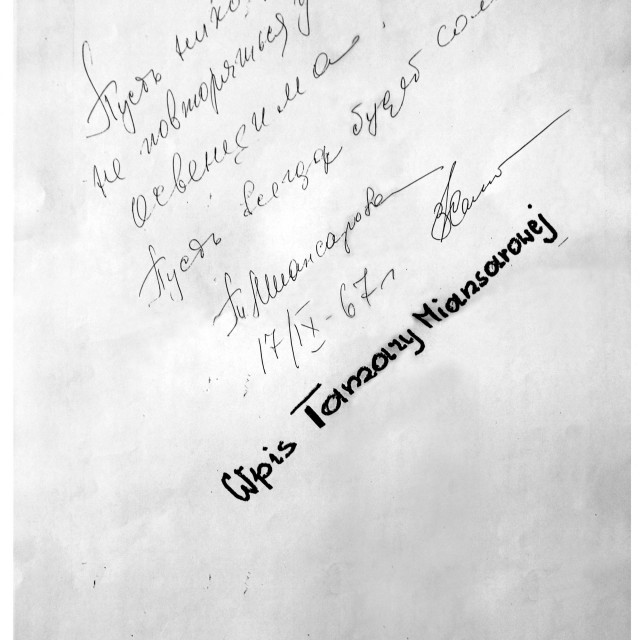 Пусть нико
не повторяться у
освенцима.
Пусть всегда будет сол
Т. Мiансарова
17/IX-67 г
Wpis Tamary Miansarowej